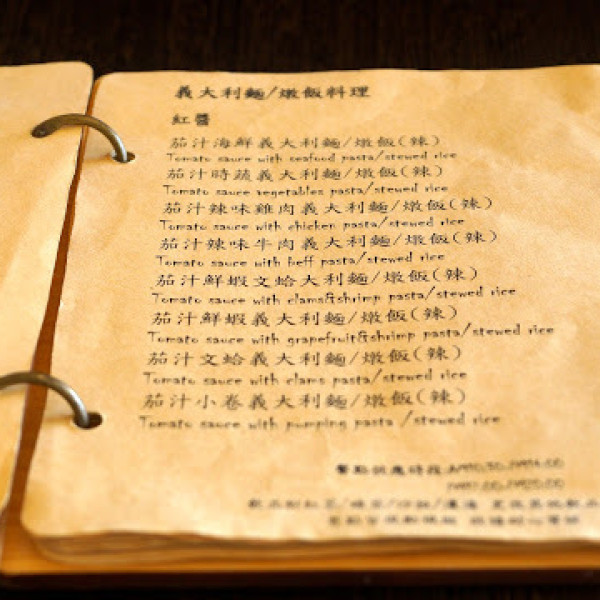 義大利麵/燉飯料理
紅醬
茄汁海鮮義大利麵/燉飯(辣)
Tomato sauce with seafood pasta/stewed rice
茄汁時蔬義大利麵/燉飯(辣)
Tomato sauce vegetables pasta/stewed rice
茄汁辣味雞肉義大利麵/燉飯(辣)
Tomato sauce with chicken pasta/stewed rice
茄汁辣味牛肉義大利麵/燉飯(辣)
Tomato sauce with beff pasta/stewed rice
茄汁鮮蝦文蛤大利麵/燉飯(辣)
Tomato sauce with clams&shrimp pasta/stewed rice
茄汁鮮蝦義大利麵/燉飯(辣)
Tomato sauce with grapefruit&shrimp pasta/stewed rice
茄汁文蛤義大利麵/燉飯(辣)
Tomato sauce with clams pasta/stewed rice
茄汁小卷義大利麵/燉飯(辣)
Tomato sauce with pumping pasta /stewed rice
餐點供應時段